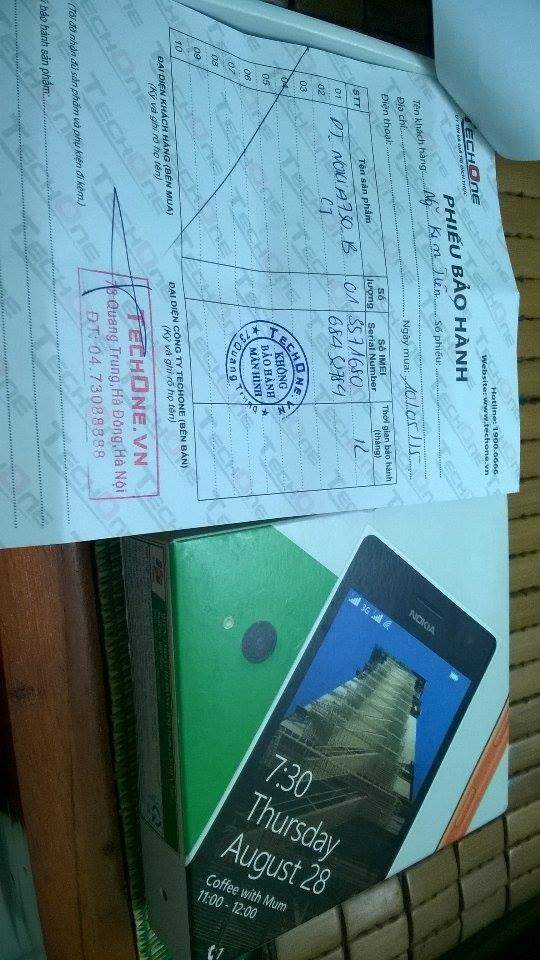 TECHONE
UY TÍN VÀ GIÁ TRỊ ĐÍCH THỰC
Hotline:1900.6666
Website:www.techone.vn
PHIẾU BẢO HÀNH
Tên khách hàng: Kim Số phiếu:
Địa chỉ: Ngày mua: 10/05/15
Điện thoại:
STT Tên sản phẩm Số lượng Số IMEI Serial Number Thời gian bảo hành (tháng)
01 ĐT NOKIA 730 B 01 12
02 CT
03
04
05
06
07
08
09
10
TECHONE.VN
KHÔNG
BẢO HÀNH
MÀN HÌNH
Quang Trung
ĐẠI DIỆN KHÁCH HÀNG (BÊN MUA) ĐẠI DIỆN CÔNG TY TECHONE (BÊN BÁN)
(Ký và ghi rõ họ tên) (Ký và ghi rõ họ tên)
TECHONE.VN
Quang Trung, Hà Đông, Hà Nội
ĐT: 04.73088888
(Tôi đã nhận đủ sản phẩm và phụ kiện đi kèm.)
bảo hành sản phẩm:
NOKIA
3G
7:30
Thursday
August 28
Coffee with Mum
11:00 - 12:00